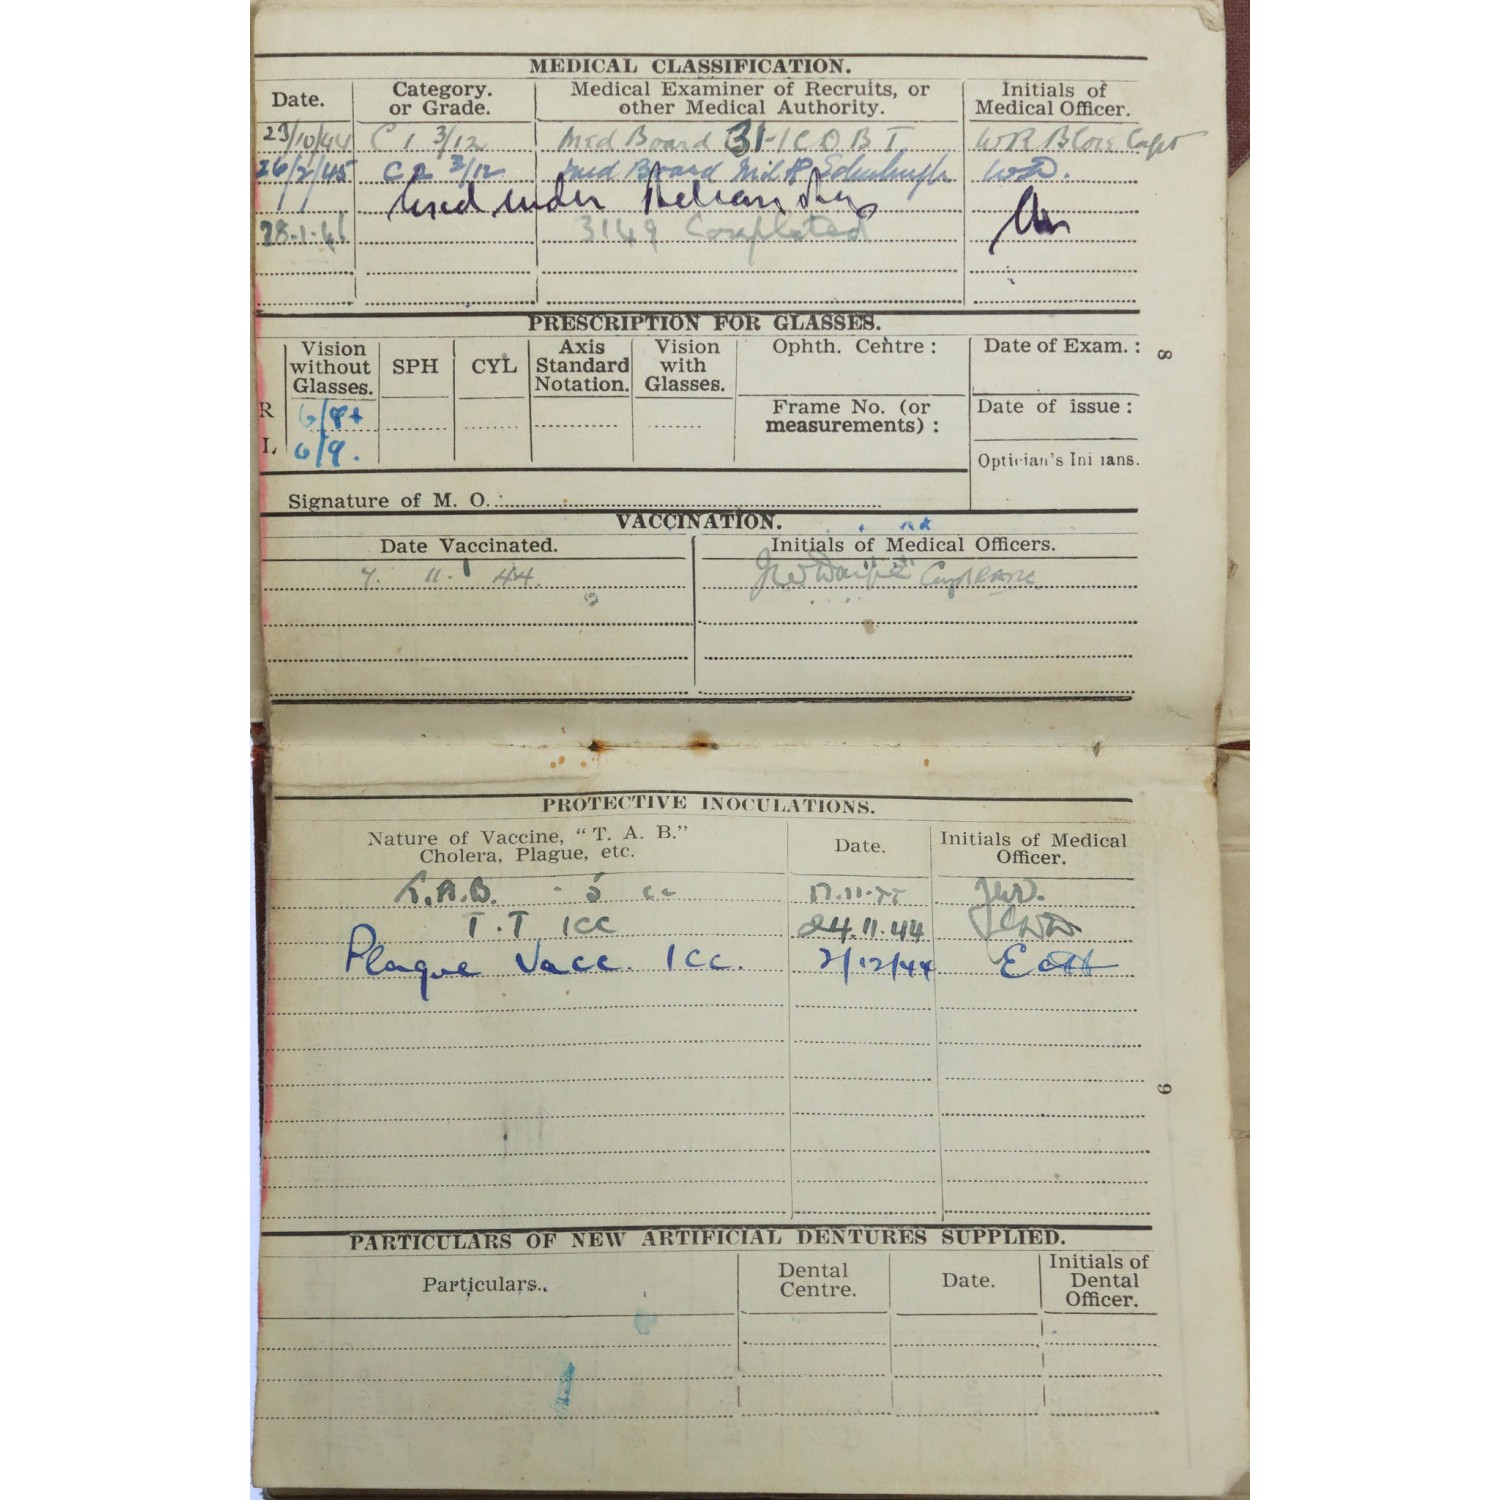 MEDICAL CLASSIFICATION.
Date. Category. or Grade. Medical Examiner of Recruits, or other Medical Authority. Initials of Medical Officer.
23/10/44 C 1 3/12 Med Board 31 I C O B T. WR Blore Capt
26/2/45 C 2 3/12 Med Board Edinburgh
used under
28.1.46 3149 Completed
PRESCRIPTION FOR GLASSES.
Vision without Glasses. SPH CYL Axis Standard Notation. Vision with Glasses. Ophth. Centre : Date of Exam. :
R 6/9+ Frame No. (or measurements) : Date of issue :
L 6/9. Optician's
Signature of M. O.
VACCINATION.
Date Vaccinated. Initials of Medical Officers.
7. 11. 44. Capt RAMC
8
PROTECTIVE INOCULATIONS.
Nature of Vaccine, "T. A. B." Cholera, Plague, etc. Date. Initials of Medical Officer.
T.A.B. - 5 cc 17.11.44 JWD.
T.T 1CC 24.11.44 JWD
Plague Vacc. 1cc. 2/12/44
9
PARTICULARS OF NEW ARTIFICIAL DENTURES SUPPLIED.
Particulars. Dental Centre. Date. Initials of Dental Officer.